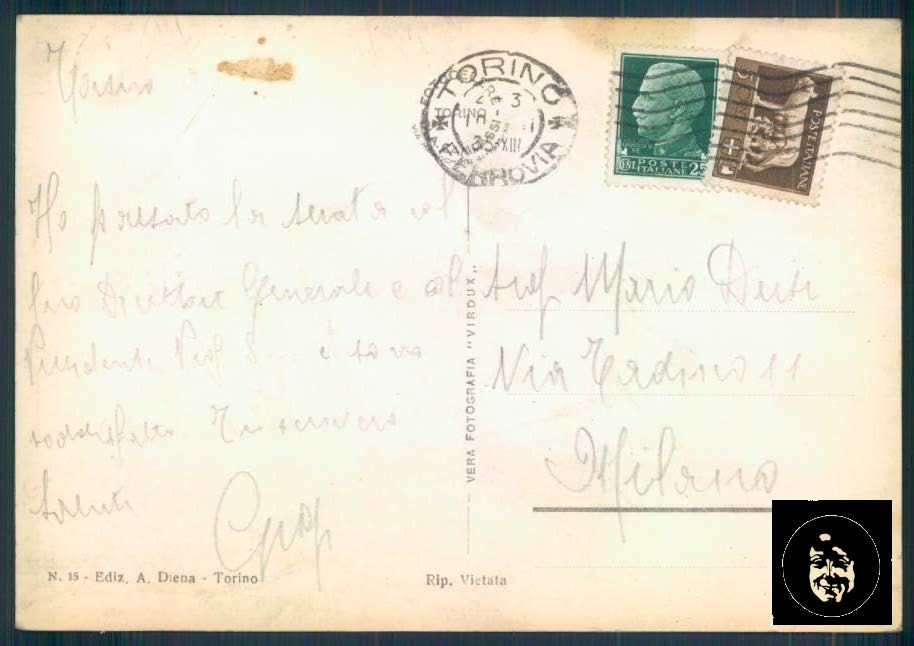 Torino
Ho passato la serata col
suo Direttore Generale e col
Presidente Prof S... e sono
soddisfatto Ti scriverò
Saluti
N. 15 - Ediz. A. Diena - Torino
VERA FOTOGRAFIA "VIRDOUX"
Rip. Vietata
TORINO
FERROVIA
XIII
POSTE
ITALIANE
CENT. 25
POSTE ITALIANE
Mario
Via Tadino 11
Milano